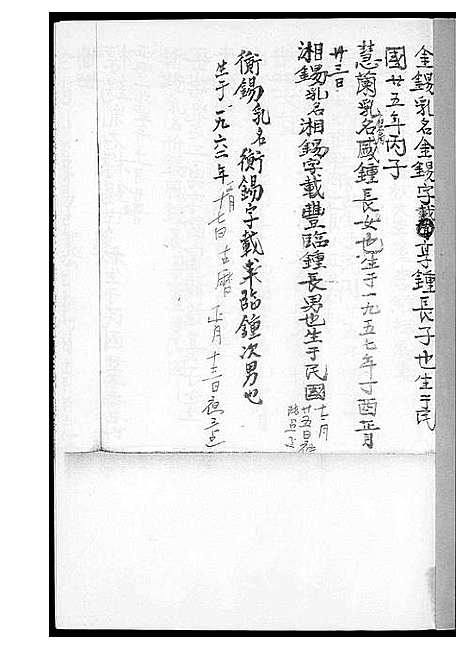 金錫乳名金錫字載享鍾長子也生于民
國廿五年丙子
慧蘭乳名國鍾長女也生于一九五七年丁酉正月
廿三日
湘錫乳名湘錫字載豐臨鍾長男也生于民國
十二月
廿五日夜
衡錫乳名衡錫字載臨鍾次男也
生于一九六二年二月十七日古曆正月十三日夜